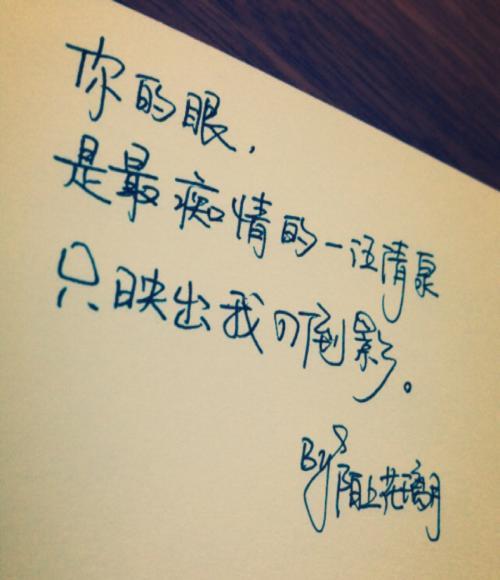 你的眼，
是最痴情的一汪清泉
只映出我的倒影。
By 陌上花